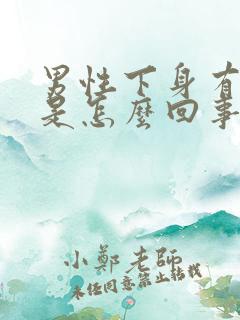 男性下身有
是怎麼回事
小鄭老師
未任同意禁止转载